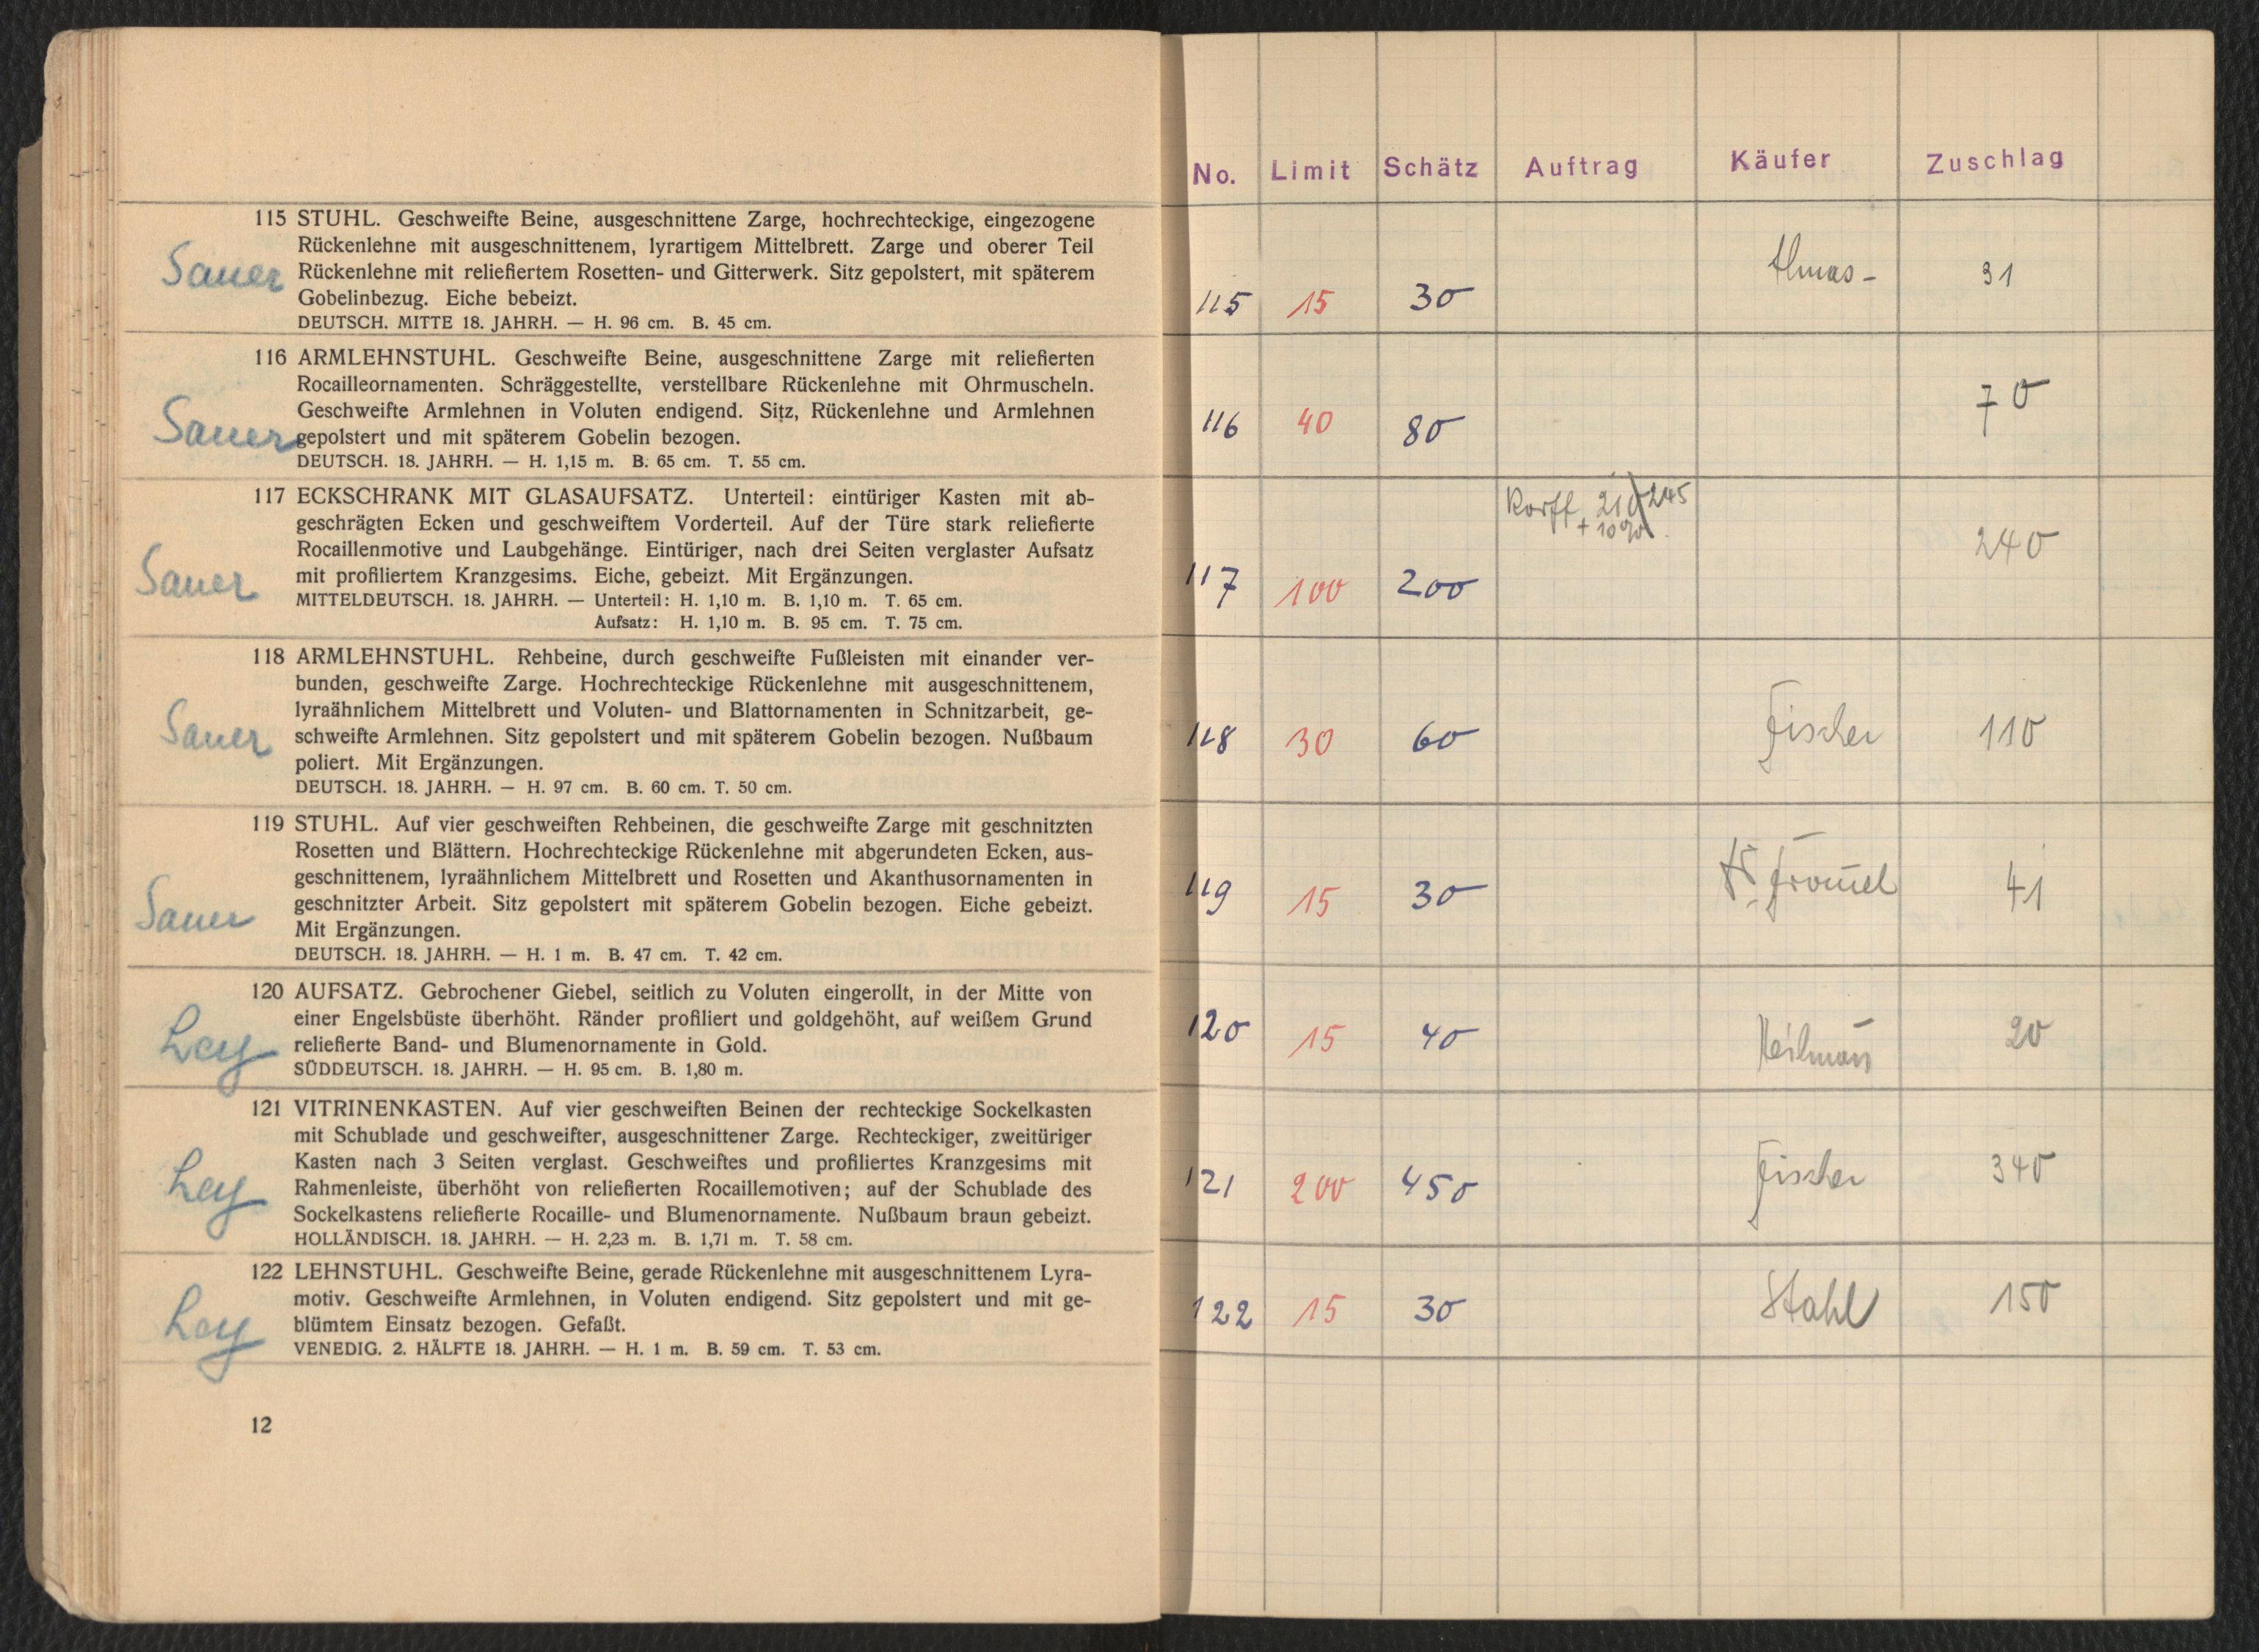 115 STUHL. Geschweifte Beine, ausgeschnittene Zarge, hochrechteckige, eingezogene
Rückenlehne mit ausgeschnittenem, lyrartigem Mittelbrett. Zarge und oberer Teil
Sauer
Rückenlehne mit reliefiertem Rosetten- und Gitterwerk. Sitz gepolstert, mit späterem
Gobelinbezug. Eiche bebeizt.
DEUTSCH. MITTE 18. JAHRH. — H. 96 cm. B. 45 cm.
116 ARMLEHNSTUHL. Geschweifte Beine, ausgeschnittene Zarge mit reliefierten
Rocailleornamenten. Schräggestellte, verstellbare Rückenlehne mit Ohrmuscheln.
Geschweifte Armlehnen in Voluten endigend. Sitz, Rückenlehne und Armlehnen
Sauer
gepolstert und mit späterem Gobelin bezogen.
DEUTSCH. 18. JAHRH. — H. 1,15 m. B. 65 cm. T. 55 cm.
117 ECKSCHRANK MIT GLASAUFSATZ. Unterteil: eintüriger Kasten mit ab-
geschrägten Ecken und geschweiftem Vorderteil. Auf der Türe stark reliefierte
Rocaillenmotive und Laubgehänge. Eintüriger, nach drei Seiten verglaster Aufsatz
Sauer
mit profiliertem Kranzgesims. Eiche, gebeizt. Mit Ergänzungen.
MITTELDEUTSCH. 18. JAHRH. — Unterteil: H. 1,10 m. B. 1,10 m. T. 65 cm.
Aufsatz: H. 1,10 m. B. 95 cm. T. 75 cm.
118 ARMLEHNSTUHL. Rehbeine, durch geschweifte Fußleisten mit einander ver-
bunden, geschweifte Zarge. Hochrechteckige Rückenlehne mit ausgeschnittenem,
lyraähnlichem Mittelbrett und Voluten- und Blattornamenten in Schnitzarbeit, ge-
Sauer
schweifte Armlehnen. Sitz gepolstert und mit späterem Gobelin bezogen. Nußbaum
poliert. Mit Ergänzungen.
DEUTSCH. 18. JAHRH. — H. 97 cm. B. 60 cm. T. 50 cm.
119 STUHL. Auf vier geschweiften Rehbeinen, die geschweifte Zarge mit geschnitzten
Rosetten und Blättern. Hochrechteckige Rückenlehne mit abgerundeten Ecken, aus-
geschnittenem, lyraähnlichem Mittelbrett und Rosetten und Akanthusornamenten in
Sauer
geschnitzter Arbeit. Sitz gepolstert mit späterem Gobelin bezogen. Eiche gebeizt.
Mit Ergänzungen.
DEUTSCH. 18. JAHRH. — H. 1 m. B. 47 cm. T. 42 cm.
120 AUFSATZ. Gebrochener Giebel, seitlich zu Voluten eingerollt, in der Mitte von
einer Engelsbüste überhöht. Ränder profiliert und goldgehöht, auf weißem Grund
Ley
reliefierte Band- und Blumenornamente in Gold.
SÜDDEUTSCH. 18. JAHRH. — H. 95 cm. B. 1,80 m.
121 VITRINENKASTEN. Auf vier geschweiften Beinen der rechteckige Sockelkasten
mit Schublade und geschweifter, ausgeschnittener Zarge. Rechteckiger, zweitüriger
Kasten nach 3 Seiten verglast. Geschweiftes und profiliertes Kranzgesims mit
Ley
Rahmenleiste, überhöht von reliefierten Rocaillemotiven; auf der Schublade des
Sockelkastens reliefierte Rocaille- und Blumenornamente. Nußbaum braun gebeizt.
HOLLÄNDISCH. 18. JAHRH. — H. 2,23 m. B. 1,71 m. T. 58 cm.
122 LEHNSTUHL. Geschweifte Beine, gerade Rückenlehne mit ausgeschnittenem Lyra-
motiv. Geschweifte Armlehnen, in Voluten endigend. Sitz gepolstert und mit ge-
Ley
blümtem Einsatz bezogen. Gefaßt.
VENEDIG. 2. HÄLFTE 18. JAHRH. — H. 1 m. B. 59 cm. T. 53 cm.
12
No. Limit Schätz Auftrag Käufer Zuschlag
115 15 30 31
116 40 80 70
Korff 210 245
+ 10%
117 100 200 240
118 30 60 Fischer 110
119 15 30 41
120 15 40 Heilmann 20
121 200 450 Fischer 340
122 15 30 Stahl 150